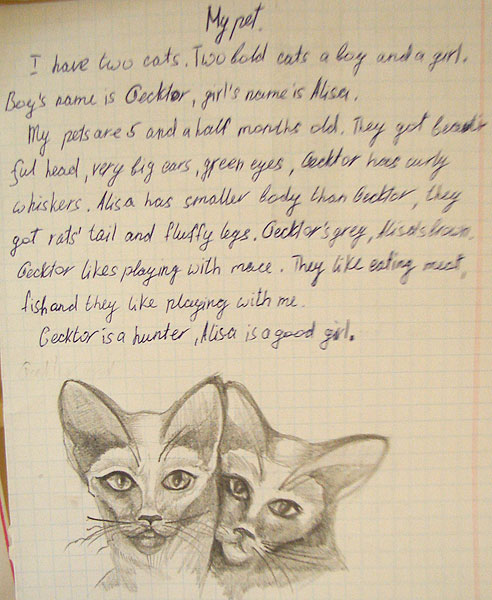 My pet.
I have two cats. Two bold cats a boy and a girl.
Boy's name is Gecktor, girl's name is Alisa.
My pets are 5 and a half months old. They got beauti
ful head, very big ears, green eyes, Gecktor has curly
whiskers. Alisa has smaller body than Gecktor, they
got rats' tail and fluffy legs. Gecktor's grey, Alisa's brown.
Gecktor likes playing with mace. They like eating meat,
fish and they like playing with me.
Gecktor is a hunter, Alisa is a good girl.